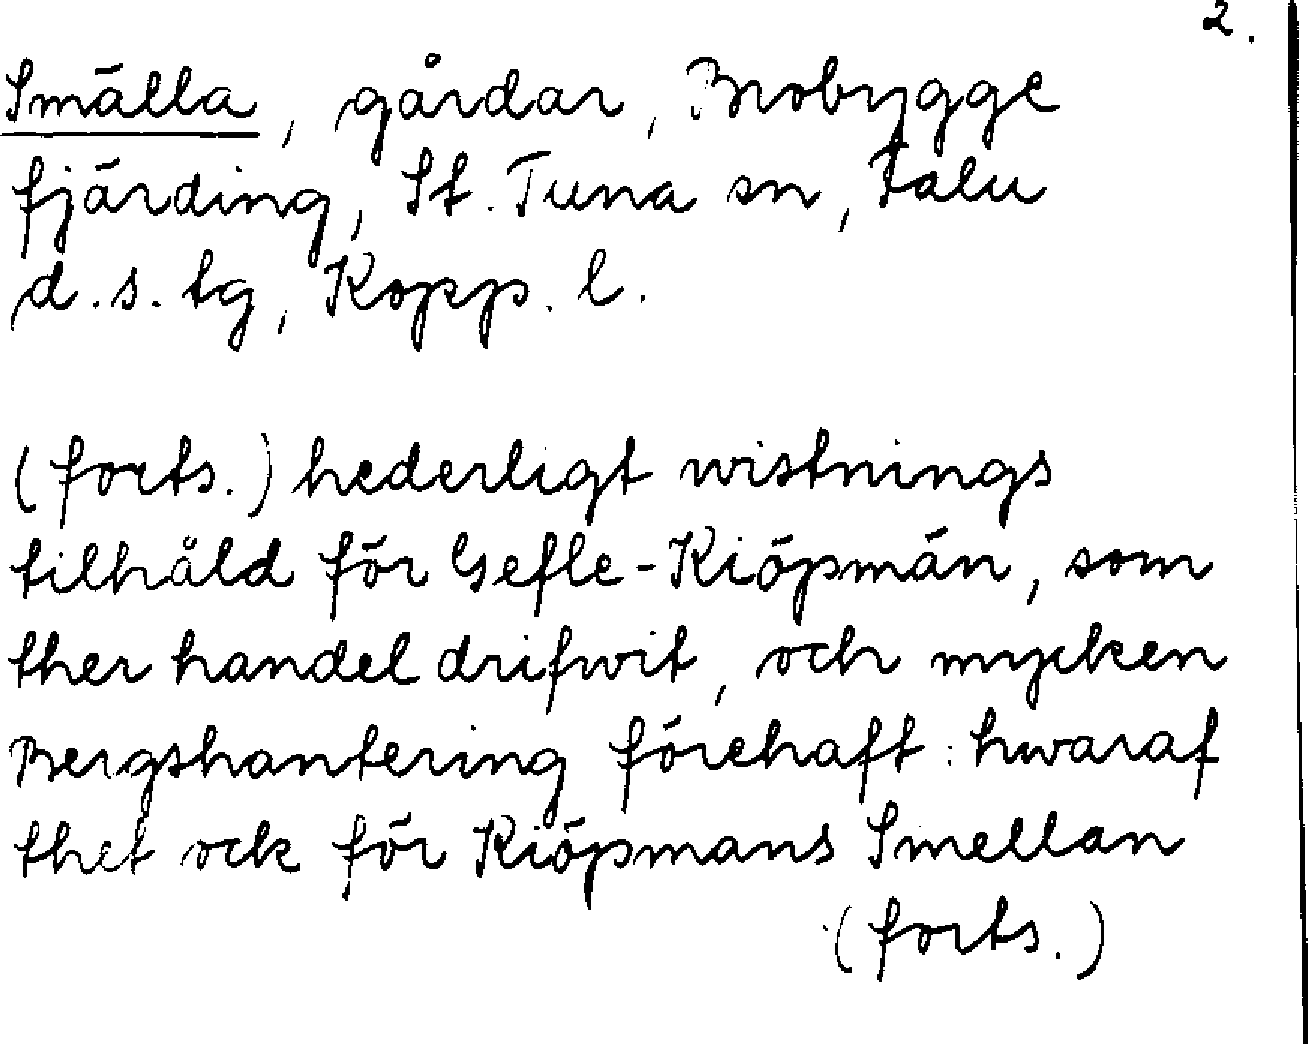 2.
Smälla, gårdar, Brobygge
fjärding, St. Tuna sn, Falu
d.s. tg, Kopp. l.
(forts.) hederligt wistnings
tilhåld för Gefle-Kiöpmän, som
ther handel drifwit, och mycken
Bergshantering förehaft: hwaraf
thet ock för Kiöpmans Smellan
(forts.)